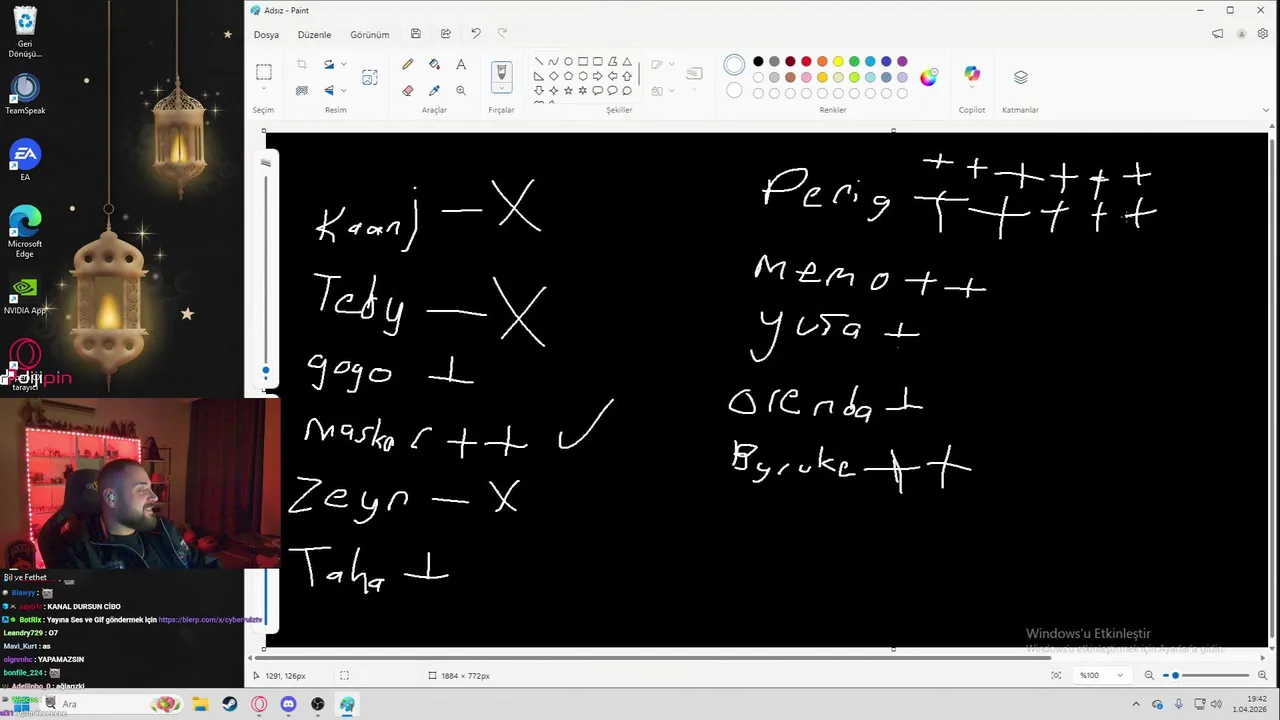 Adsız - Paint
Dosya Düzenle Görünüm
Seçim Resim Araçlar Fırçalar Şekiller Renkler Copilot Katmanlar
Geri Dönüşü...
TeamSpeak
EA
Microsoft Edge
NVIDIA App
tarayıcı
Kaanj — X
Teby — X
gogo +
Masker + + ✓
Zeyn — X
Taha +
Perig + + + + + + + + + + +
Memo + +
Yuşa +
Orenda +
Byruke + +
Bil ve Fethet
Biawyy :
sayb1r : KANAL DURSUN CİBO
BotRix : Yayına Ses ve Gif göndermek için https://blerp.com/x/cyberrulztv
Leandry729 : O7
Mavi_Kurt : as
olgnmhc : YAPAMAZSIN
bonfile_224 :
Adellinho_0 : ağlarızki
Windows'u Etkinleştir
Windows'u etkinleştirmek için Ayarlar'a gidin.
1291, 126px
1884 × 772px
%100
Ara
19:42
1.04.2026